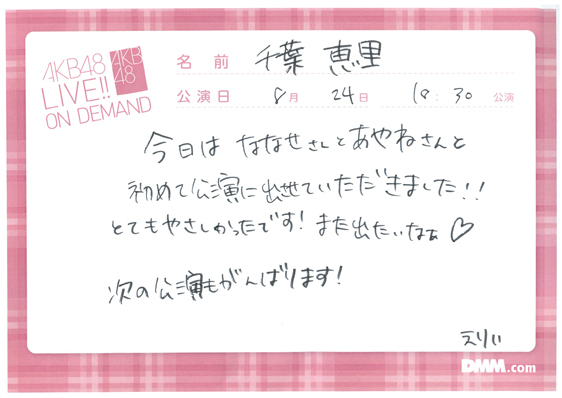 AKB48
LIVE!!
ON DEMAND
AKB
48
名前 千葉 恵里
公演日 8月 24日 18:30 公演
今日は ななせさんとあやねさんと
初めて公演に出せていただきました!!
とてもやさしかったです! また出たいなぁ♡
次の公演もがんばります!
えりい
DMM.com